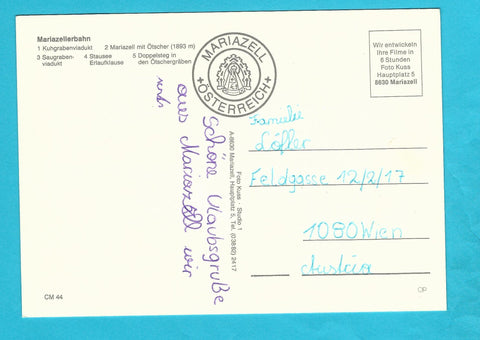 Mariazellerbahn
1 Kuhgrabenviadukt 2 Mariazell mit Ötscher (1893 m)
3 Saugraben- 4 Stausee 5 Doppelsteg in
viadukt Erlaufklause den Ötschergräben
MARIAZELL
+ÖSTERREICH+
Wir entwickeln
Ihre Filme in
6 Stunden
Foto Kuss
Hauptplatz 5
8630 Mariazell
Schöne Ulaubsgruße
aus Mariazell wir
Foto Kuss - Studio 1
A-8630 Mariazell, Hauptplatz 5, Tel. (03882) 2417
Familie
Löfler
Feldgasse 12/2/17
1080 Wien
Austria
CM 44
OP